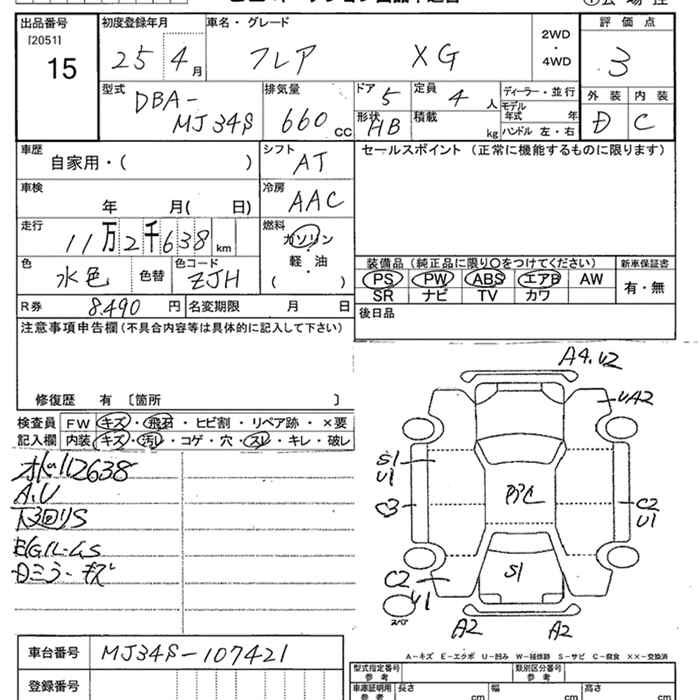 出品番号 初度登録年月 車名・グレード 評価点
[2051]
15 25 4月 フレア XG 2WD・4WD 3
型式 DBA-MJ34S 排気量 660 CC ドア 5 定員 4人 ディーラー・並行
外装 内装
形状 HB 積載 kg モデル年式 年
ハンドル 左・右 D C
車歴 自家用・( ) シフト AT セールスポイント (正常に機能するものに限ります)
車検 年 月( 日) 冷房 AAC
走行 11万2千638 km 燃料 ガソリン・軽・油 ( )
色 水色 色替 色コード ZJH
装備品 (純正品に限り〇をつけてください) 新車保証書
PS PW ABS エアB AW 有・無
SR ナビ TV カワ
R券 8.490円 名変期限 月 日
後日品
注意事項申告欄(不具合内容等は具体的に記入して下さい)
修復歴 有 〔箇所 〕
検査員 FW キズ・飛石・ヒビ割・リペア跡・×要
記入欄 内装 キズ・汚レ・コゲ・穴・スレ・キレ・破レ
A4.U2
UA2
S1
U1
C3
C2
U1
S1
C2
U1
スペア
A2
A2
112638
A.U
A-キズ E-エクボ U-凹み W-補修跡 S-サビ C-腐食 XX-交換済
車台番号 MJ34S-107421
型式指定番号 参考 類別区分番号 参考
登録番号 車庫証明用 参考 長さ cm 幅 cm 高さ cm